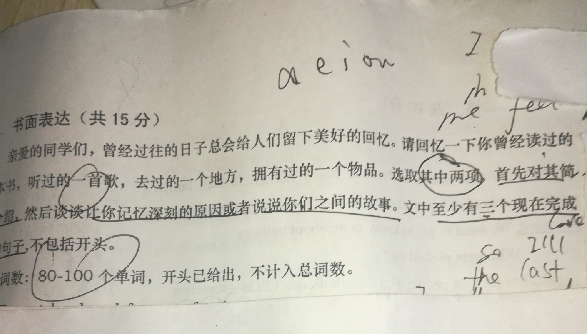 a e i o u
I
me feel
书面表达（共15分）
亲爱的同学们，曾经过往的日子总会给人们留下美好的回忆。请回忆一下你曾经读过的
本书，听过的一首歌，去过的一个地方，拥有过的一个物品。选取其中两项，首先对其简
介绍，然后谈谈让你记忆深刻的原因或者说说你们之间的故事。文中至少有三个现在完成
句子，不包括开头。
词数：80-100 个单词，开头已给出，不计入总词数。
so
the last,